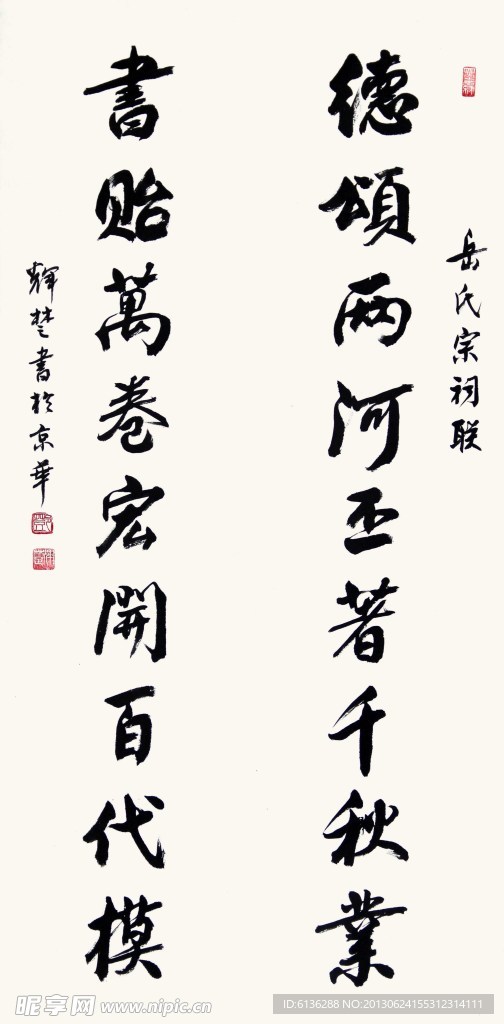 岳氏宗祠联
德頌两河丕著千秋業
書貽萬卷宏開百代模
輝楚書於京華
昵享网 www.nipic.cn
ID:6136288 NO:20130624155312314111